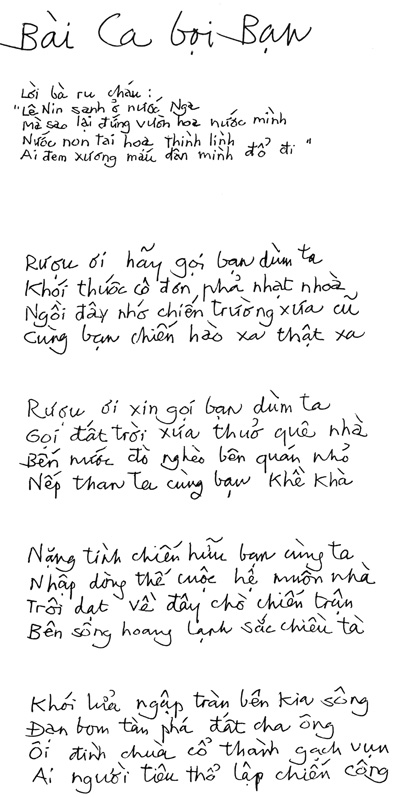 Bài Ca Gọi Bạn
Lời bà ru cháu :
"Lê Nin sanh ở nước Nga
Mà sao lại đứng vườn hoa nước mình
Nước non tai hoạ thình lình
Ai đem xương máu dân mình đổ đi "
Rượu ơi hãy gọi bạn dùm ta
Khói thuốc cô đơn phả nhạt nhoà
Ngồi đây nhớ chiến trường xưa cũ
Cùng bạn chiến hào xa thật xa
Rượu ơi xin gọi bạn dùm ta
Gọi đất trời xưa thuở quê nhà
Bến nước đò nghèo bên quán nhỏ
Nếp than ta cùng bạn khề khà
Nặng tình chiến hữu bạn cùng ta
Nhập dòng thế cuộc hệ muôn nhà
Trôi dạt về đây chờ chiến trận
Bên sông hoang lạnh sắc chiều tà
Khói lửa ngập tràn bên kia sông
Đạn bom tàn phá đất cha ông
Ôi đình chùa cổ thành gạch vụn
Ai người tiêu thổ lập chiến công